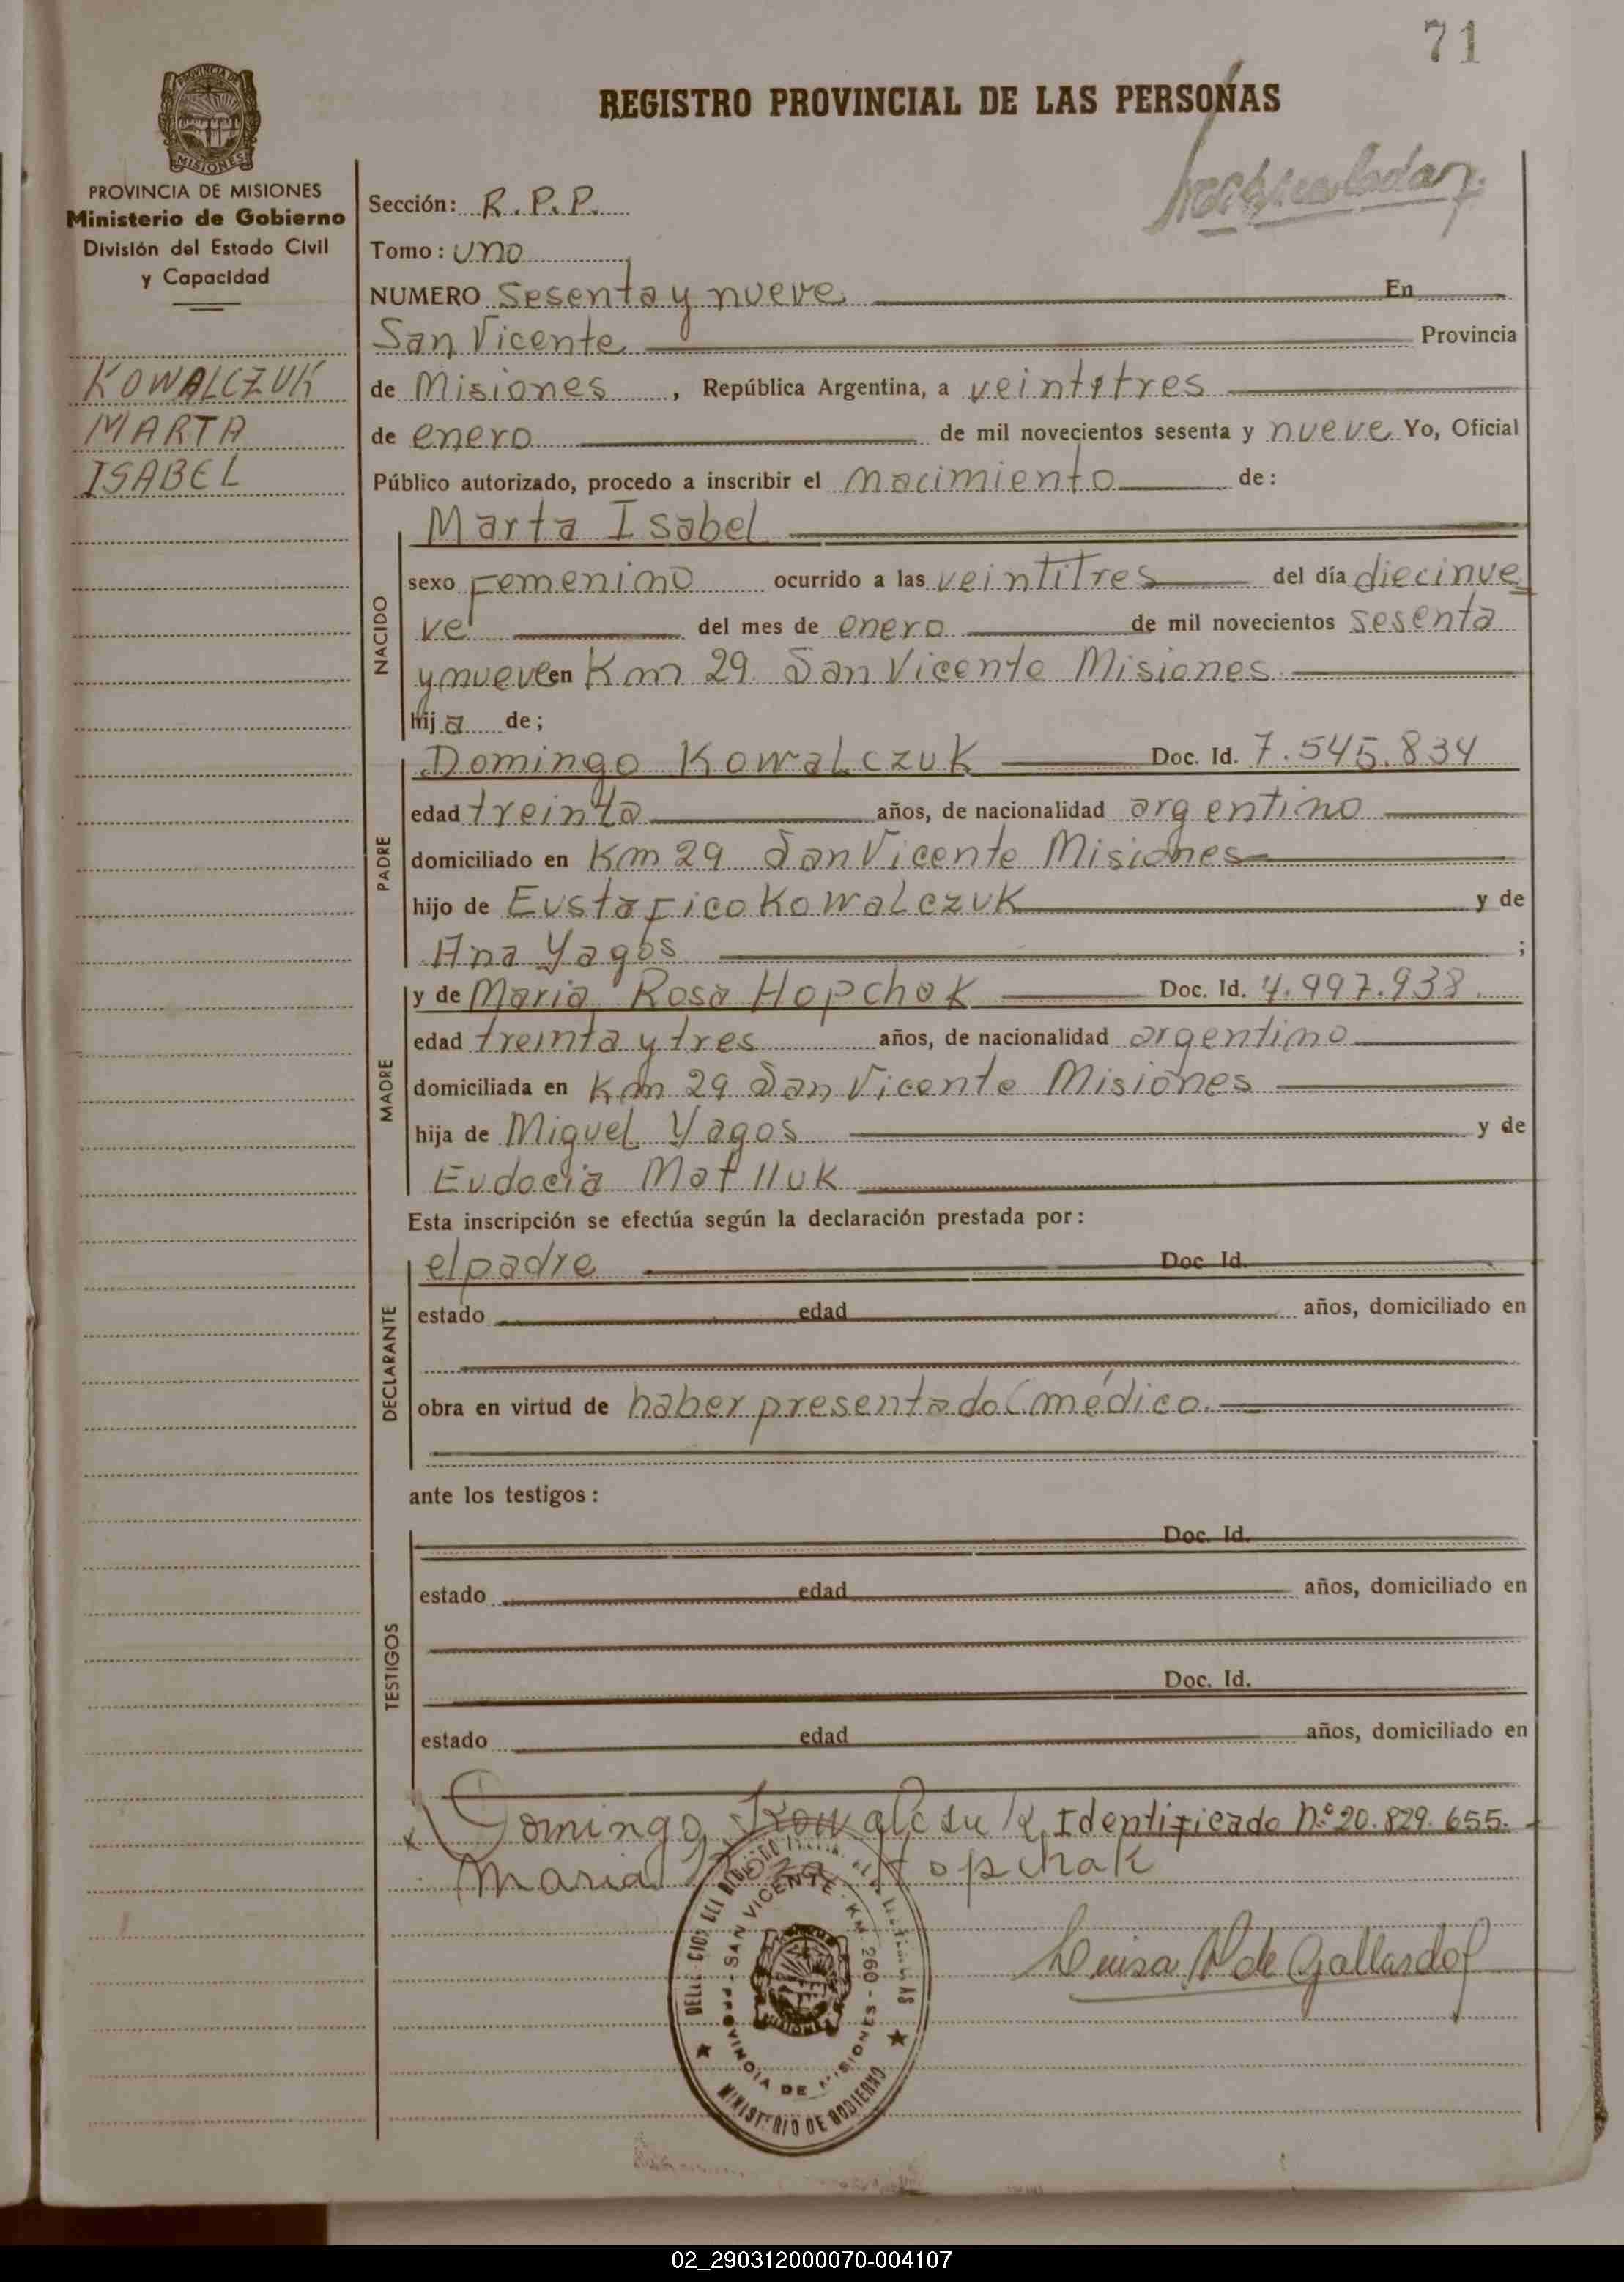 71
REGISTRO PROVINCIAL DE LAS PERSONAS
PROVINCIA DE MISIONES
MISIONES
PROVINCIA DE MISIONES
Ministerio de Gobierno
División del Estado Civil
y Capacidad
KOWALCZUK
MARTA
ISABEL
Sección: R.P.P.
Tomo: uno
NUMERO Sesenta y nueve En
San Vicente Provincia
de Misiones, República Argentina, a veintitres
de enero de mil novecientos sesenta y nueve Yo, Oficial
Público autorizado, procedo a inscribir el nacimiento de:
NACIDO
Marta Isabel
sexo Femenino ocurrido a las veintitres del día diecinue
ve del mes de enero de mil novecientos sesenta
y nueve en Km 29 San Vicente Misiones
hija de;
PADRE
Domingo Kowalczuk Doc. Id. 7.545.834
edad treinta años, de nacionalidad argentino
domiciliado en Km 29 San Vicente Misiones
hijo de Eustafico Kowalczuk y de
Ana Yagos ;
MADRE
y de Maria Rosa Hopchok Doc. Id. 4.997.938.
edad treinta y tres años, de nacionalidad argentino
domiciliada en Km 29 San Vicente Misiones
hija de Miguel Yagos y de
Eudocia
Esta inscripción se efectúa según la declaración prestada por:
DECLARANTE
el padre Doc. Id.
estado edad años, domiciliado en
obra en virtud de haber presentado C. médico.
ante los testigos:
TESTIGOS
Doc. Id.
estado edad años, domiciliado en
Doc. Id.
estado edad años, domiciliado en
x Domingo Kowalcsuk Identificado Nº 20.829.655.
Maria Roza Hopchak
Luisa de Gallardo
SAN VICENTE - KM. 260 - MISIONES
PROVINCIA DE MISIONES
MINISTERIO DE GOBIERNO
02_290312000070-004107